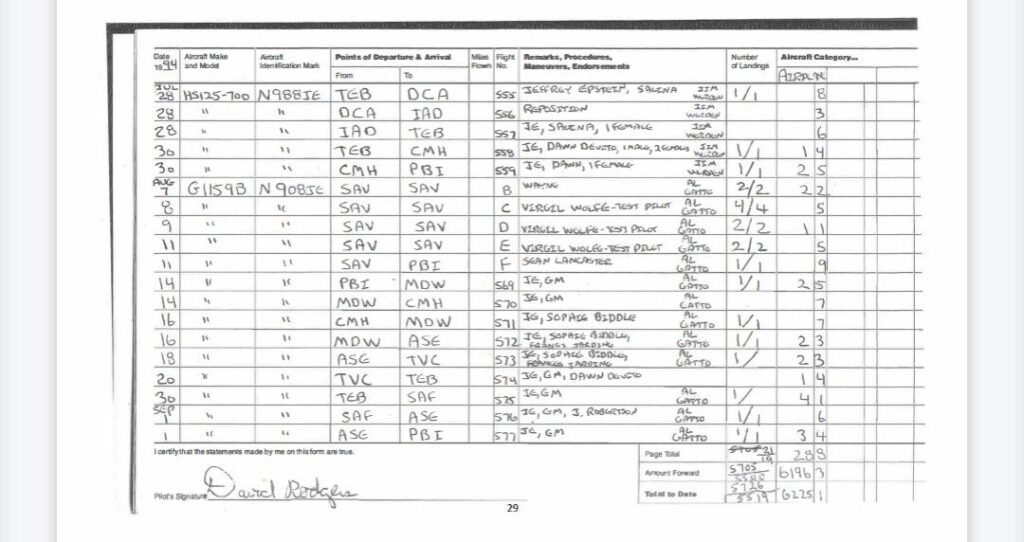 Date 1994 Aircraft Make and Model Aircraft Identification Mark Points of Departure & Arrival From To Miles Flown Flight No. Remarks, Procedures, Maneuvers, Endorsements Number of Landings Aircraft Category... AIRPLANE
JUL 28 HS125-700 N988JE TEB DCA 555 JEFFREY EPSTEIN, SALINA JIM 1/1 8
28 " " DCA IAD 556 REPOSITION JIM 3
28 " " IAD TEB 557 JE, SALINA, 1 FEMALE JIM 6
30 " " TEB CMH 558 JE, DAWN DEVITO, 1 MALE, 2 FEMALES JIM 1/1 1 4
30 " " CMH PBI 559 JE, DAWN, 1 FEMALE JIM 1/1 2 5
AUG 7 G1159B N908JE SAV SAV B WAYNE AL GATTO 2/2 2 2
8 " " SAV SAV C VIRGIL WOLFE-TEST PILOT AL GATTO 4/4 5
9 " " SAV SAV D VIRGIL WOLFE-TEST PILOT AL GATTO 2/2 1 1
11 " " SAV SAV E VIRGIL WOLFE-TEST PILOT AL GATTO 2/2 5
11 " " SAV PBI F SEAN LANCASTER AL GATTO 1/1 9
14 " " PBI MDW 569 JE, GM AL GATTO 1/1 2 5
14 " " MDW CMH 570 JE, GM AL GATTO 7
16 " " CMH MDW 571 JE, SOPHIE BIDDLE AL GATTO 1/1 7
16 " " MDW ASE 572 JE, SOPHIE BIDDLE, FRANCIS JARDING AL GATTO 1/1 2 3
18 " " ASE TVC 573 JE, SOPHIE BIDDLE, FRANCES JARDING AL GATTO 1/ 2 3
20 " " TVC TEB 574 JE, GM, DAWN DEVITO 1 4
30 " " TEB SAF 575 JE, GM AL GATTO 1/ 4 1
SEP 1 " " SAF ASE 576 JE, GM, J. ROBERTSON AL GATTO 1/1 6
1 " " ASE PBI 577 JE, GM AL GATTO 1/1 3 4
I certify that the statements made by me on this form are true.
Page Total 21/19 28 8
Amount Forward 5705/5500 6196 3
Pilot's Signature David Rodgers Total to Date 5726/5519 6225 1
29